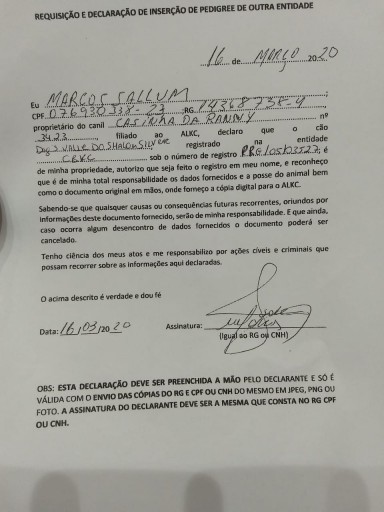 REQUISIÇÃO E DECLARAÇÃO DE INSERÇÃO DE PEDIGREE DE OUTRA ENTIDADE
16 de MARÇO 20 20
Eu MARCOS SALLUM ;
CPF 076930338-23 RG 14368738-4 ;
proprietário do canil CASINHA DA RANNY nº
3423 , filiado ao ALKC, declaro que o cão
DO SHALOM registrado na entidade
sob o número de registro é
de minha propriedade, autorizo que seja feito o registro em meu nome, e reconheço
que é de minha total responsabilidade os dados fornecidos e a posse do animal bem
como o documento original em mãos, onde forneço a cópia digital para o ALKC.
Sabendo-se que quaisquer causas ou consequências futuras recorrentes, oriundos por
informações deste documento fornecido, serão de minha responsabilidade. E que ainda,
caso ocorra algum desencontro de dados fornecidos o documento poderá ser
cancelado.
Tenho ciência dos meus atos e me responsabilizo por ações cíveis e criminais que
possam recorrer sobre as informações aqui declaradas.
O acima descrito é verdade e dou fé
Data: 16/03/2020 Assinatura:
(Igual ao RG ou CNH)
OBS: ESTA DECLARAÇÃO DEVE SER PREENCHIDA A MÃO PELO DECLARANTE E SÓ É
VÁLIDA COM O ENVIO DAS CÓPIAS DO RG E CPF OU CNH DO MESMO EM JPEG, PNG OU
FOTO. A ASSINATURA DO DECLARANTE DEVE SER A MESMA QUE CONSTA NO RG CPF
OU CNH.